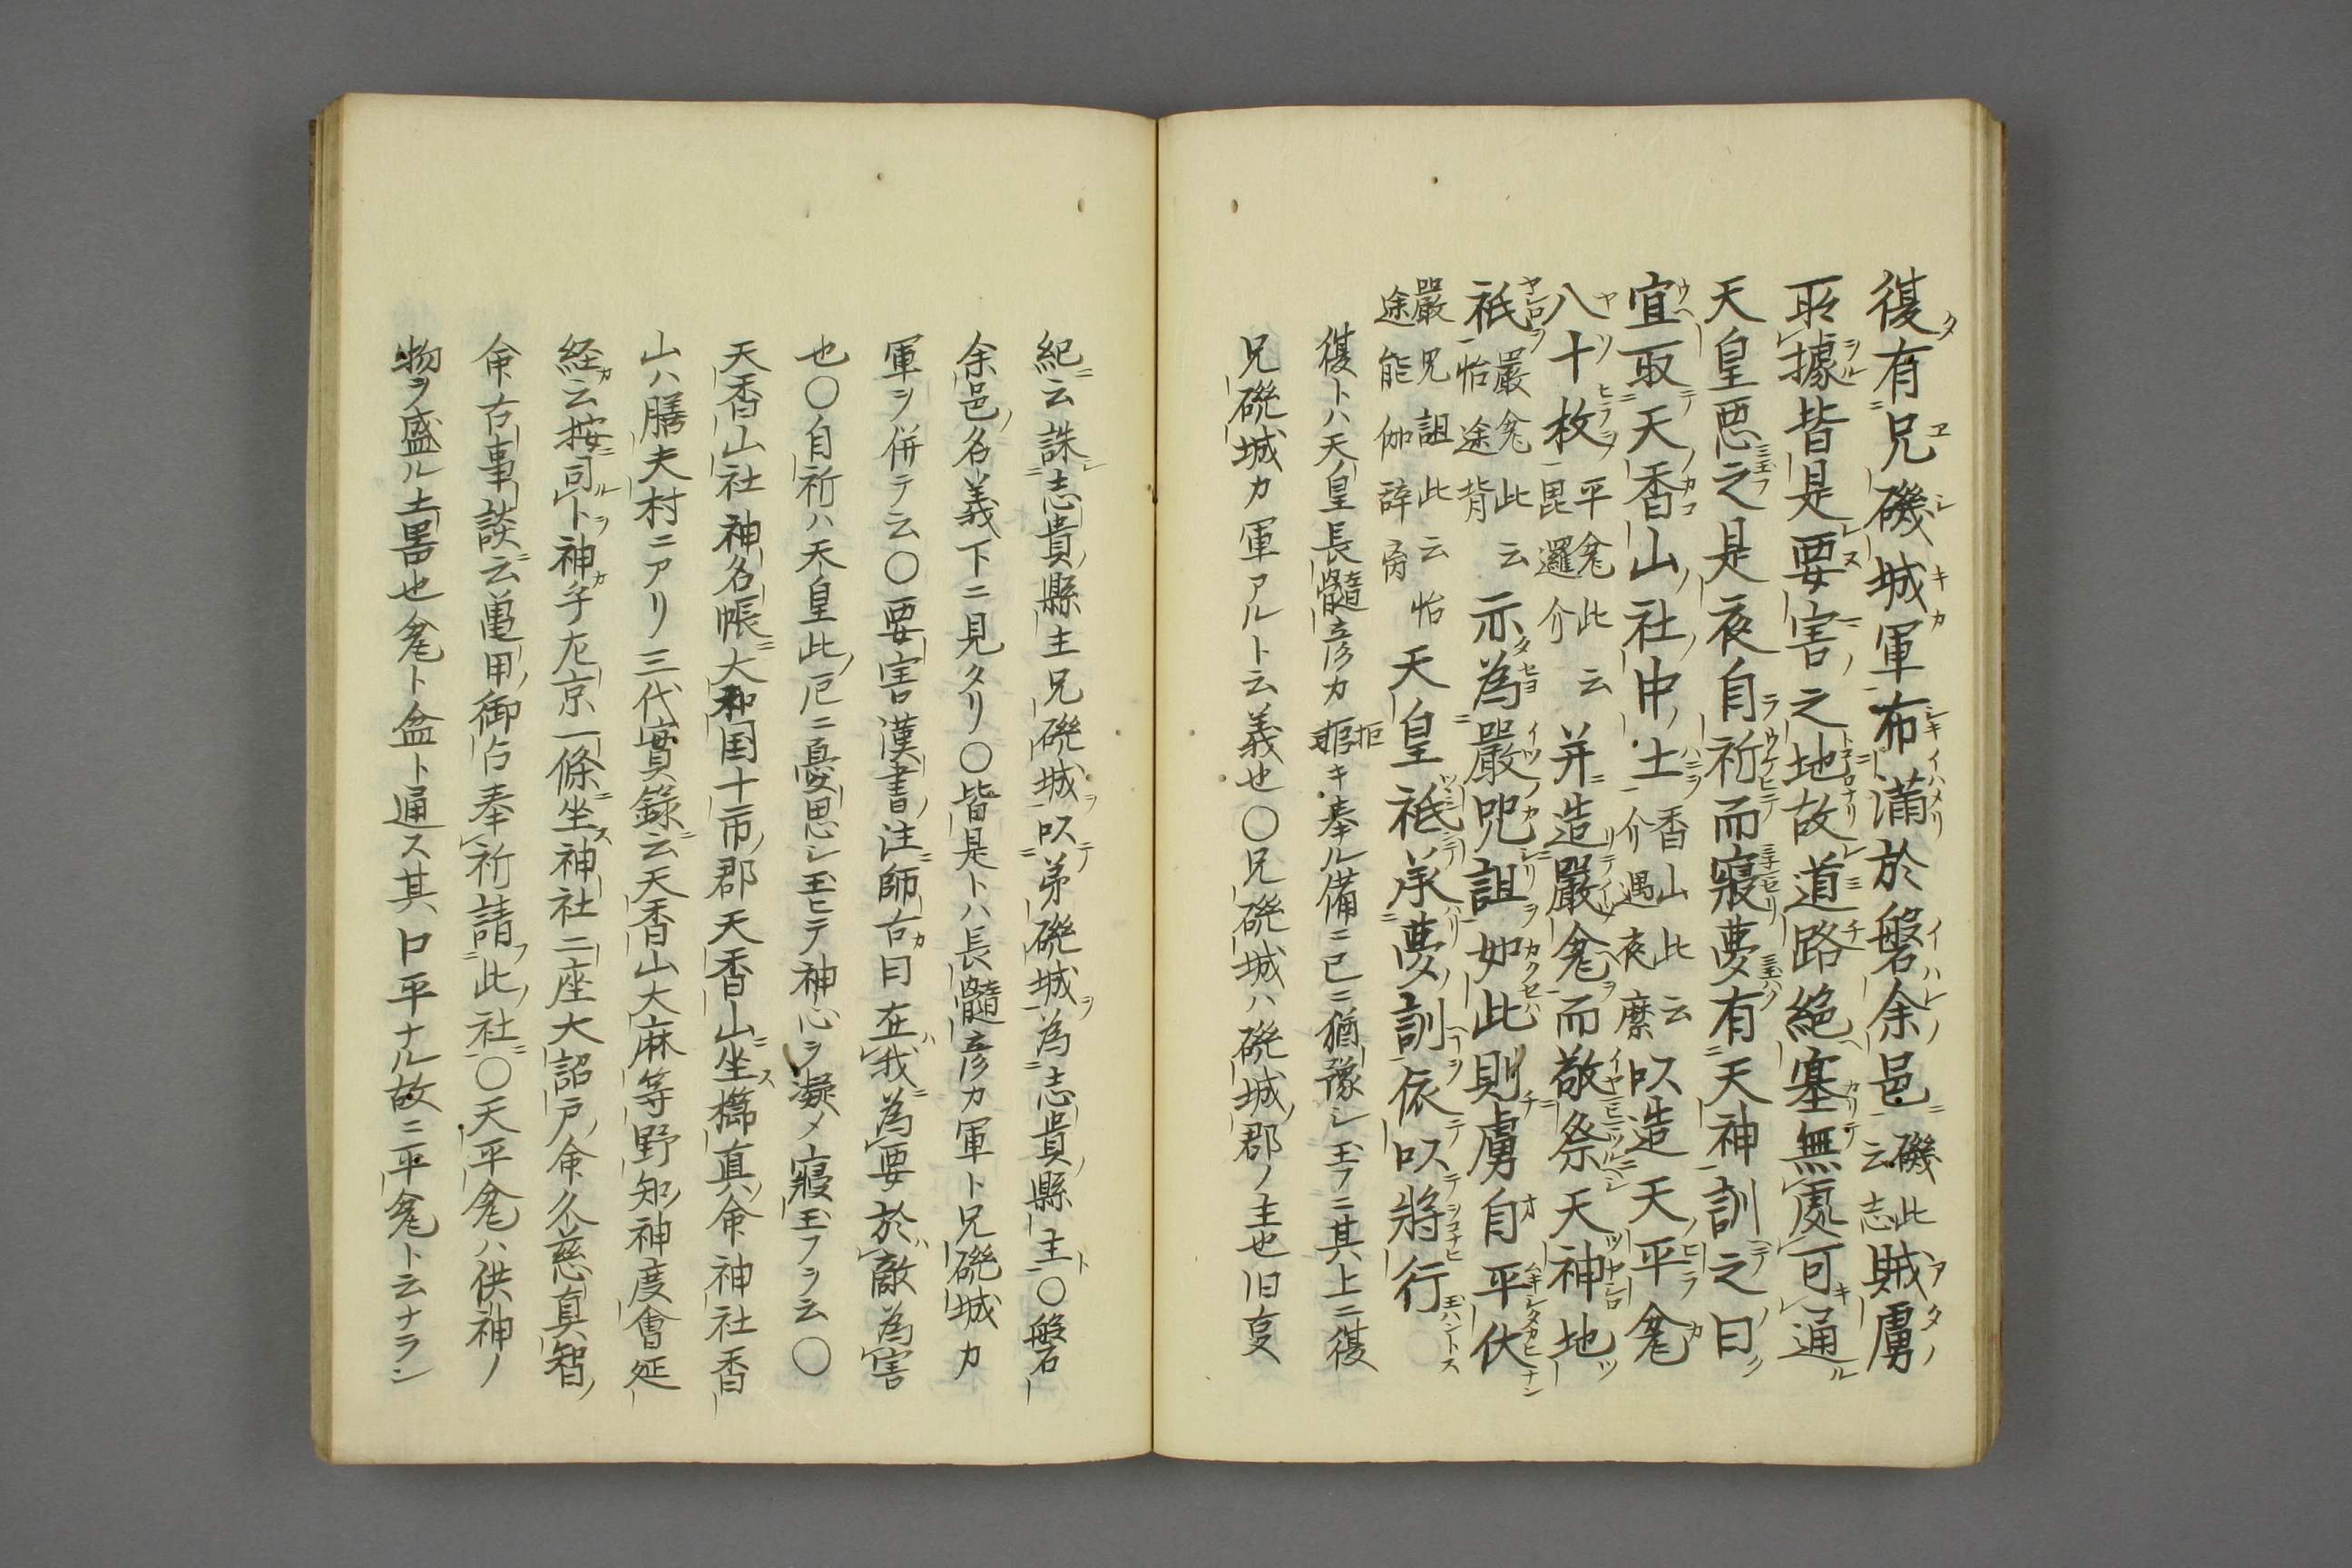 復有兄磯城軍布満於磐余邑磯此云志賊虜
所據皆是要害之地故道路絶塞無處可通
天皇悪之是夜自祈而寝夢有天神訓之曰
宜取天香山社中土香山此云介遇夜縻以造天平瓮
八十枚平瓮此云毘邏介并造嚴瓮而敬祭天神地
祇嚴瓮此云怡途背示為嚴咒詛如此則虜自平伏
嚴咒詛此云怡途能伽辞離天皇祇承夢訓依以将行
復トハ天皇長髄彦カ拒キ奉ル備ニ已ニ猶豫シ玉フニ其上ニ復
兄磯城カ軍アルト云義也〇兄磯城ハ磯城ノ郡ノ主也旧叓
紀ニ云誅志貴ノ縣主兄磯城ヲ以テ弟磯城ヲ為志貴ノ縣主ト〇磐
余邑ノ名義下ニ見タリ〇皆是トハ長髄彦カ軍ト兄磯城カ
軍ヲ併テ云〇要害漢書ノ注ニ師古カ曰在ハ我ニ為要於ハ敵為害
也〇自祈ハ天皇此ノ厄ニ憂思シ玉ヒテ神心ヲ凝メ寝玉フヲ云〇
天香山社神名帳ニ大和国十市ノ郡天香山ニ坐ス櫛真ノ命神社香
山ハ膳夫村ニアリ三代實録ニ云天香山大麻等野知ノ神度會延
経カ云按ニ司ルトヲ神子左京一條ニ坐ス神社二座大詔戸ノ命久慈真智ノ
命古事談ニ云亀甲ノ御占奉祈請フ此ノ社ニ〇天平瓮ハ供神ノ
物ヲ盛ル土器也瓮ト盆ト通ス其ノ口平ナル故ニ平瓮ト云ナラン